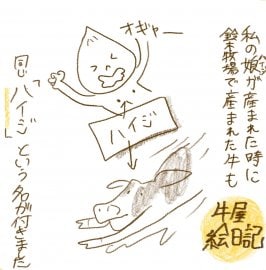 私の娘が産まれた時に
ハイジ
鈴木牧場で産まれた牛も
オギャー
ハイジ
同じ「ハイジ」という名が付きました
牛屋
絵日記